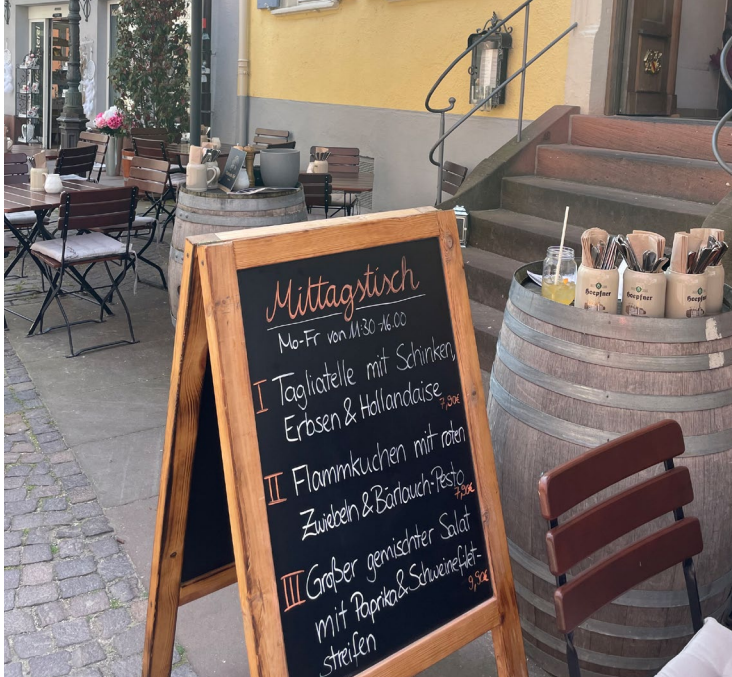 Mittagstisch
Mo-Fr von 11:30-16.00
I Tagliatelle mit Schinken,
Erbsen & Hollandaise 7,90€
II Flammkuchen mit roten
Zwiebeln & Bärlauch-Pesto 7,90€
III Großer gemischter Salat
mit Paprika & Schweinefilet- 9,90€
streifen
Hoepfner
Hoepfner
Hoepfner